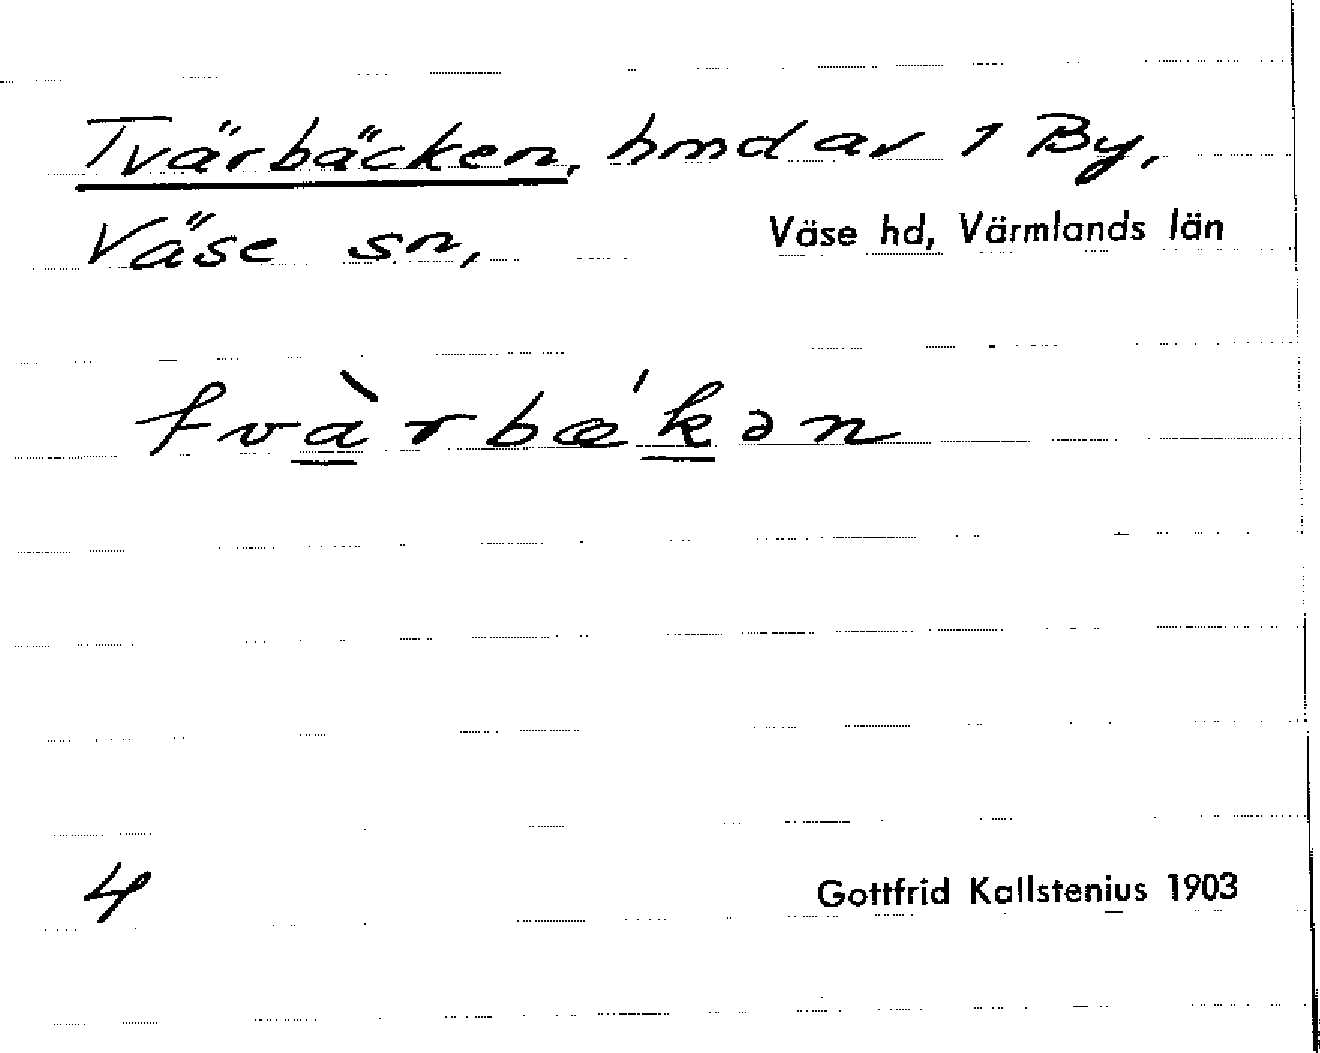 Tvärbäcken, hmd av 1 By,
Väse sn, Väse hd, Värmlands län
tvàrbæ'kən
4 Gottfrid Kallstenius 1903